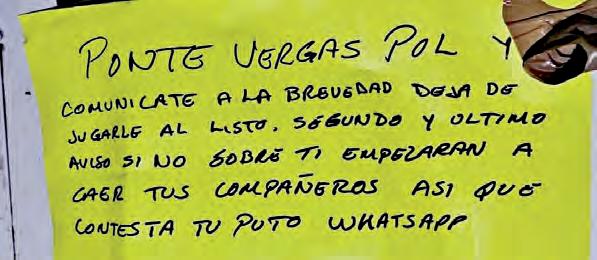 PONTE VERGAS POL Y
COMUNICATE A LA BREVEDAD DEJA DE
JUGARLE AL LISTO. SEGUNDO Y ULTIMO
AVISO SI NO SOBRE TI EMPEZARAN A
CAER TUS COMPAÑEROS ASI QUE
CONTESTA TU PUTO WHATSAPP